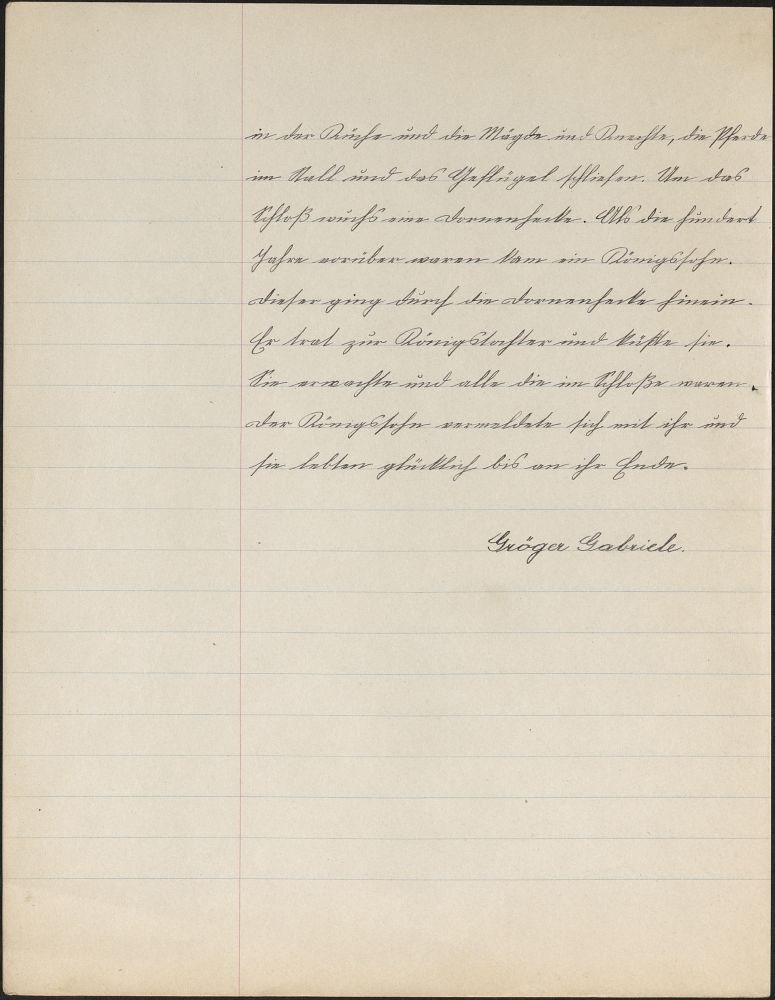 in der Küche und die Mägde und Knechte, die Pferde
im Stall und das Geflügel schliefen. Um das
Schloß wuchs eine Dornenhecke. Als die hundert
Jahre vorüber waren kam ein Königssohn.
Dieser ging durch die Dornenhecke hinein.
Er trat zur Königstochter und küßte sie.
Sie erwachte und alle die im Schloße waren.
Der Königssohn vermeldete sich mit ihr und
sie lebten glücklich bis an ihr Ende.
Gröger Gabriele.